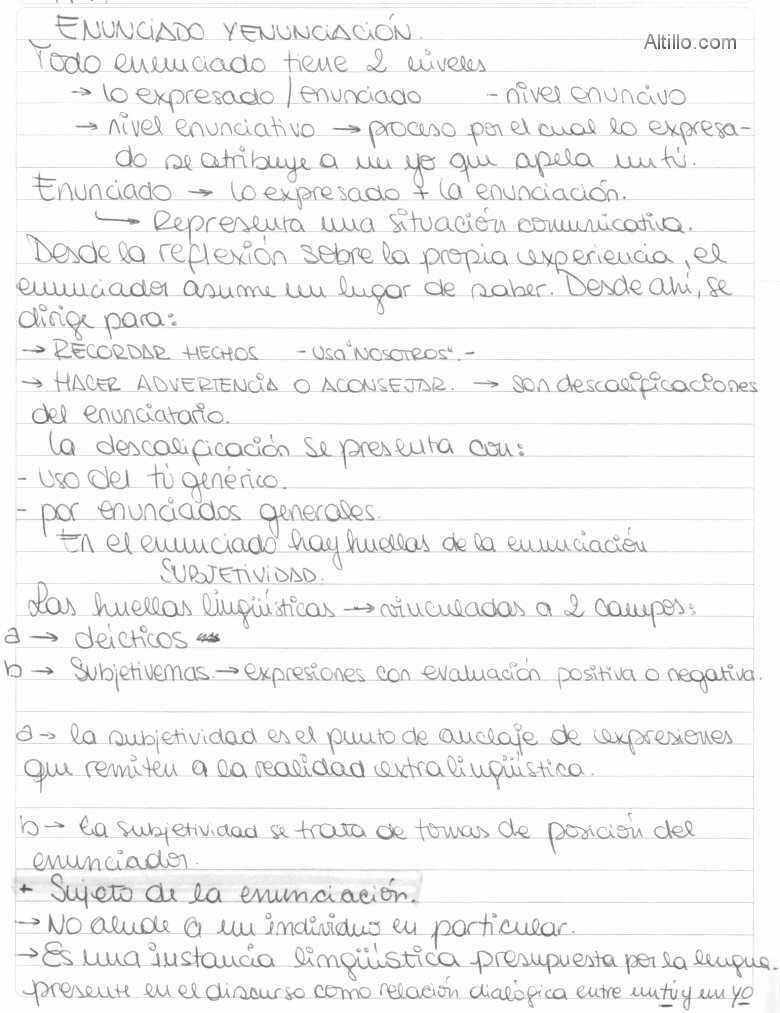 ENUNCIADO Y ENUNCIACIÓN.
Altillo.com
Todo enunciado tiene 2 niveles
→ lo expresado / enunciado - nivel enuncivo
→ nivel enunciativo → proceso por el cual lo expresa-
do se atribuye a un yo que apela un tú.
Enunciado → lo expresado + la enunciación.
↳ Representa una situación comunicativa.
Desde la reflexión sobre la propia experiencia, el
enunciador asume un lugar de saber. Desde ahí, se
dirige para:
→ RECORDAR HECHOS - USA "NOSOTROS". -
→ HACER ADVERTENCIA O ACONSEJAR. → son descalificaciones
del enunciatario.
La descalificación se presenta con:
- uso del tú genérico.
- por enunciados generales.
En el enunciado hay huellas de la enunciación
SUBJETIVIDAD.
Las huellas lingüísticas → vinculadas a 2 campos:
a → deícticos
b → Subjetivemas. → expresiones con evaluación positiva o negativa.
a → la subjetividad es el punto de anclaje de expresiones
que remiten a la realidad extralingüística.
b → la subjetividad se trata de tomas de posición del
enunciador.
+ Sujeto de la enunciación.
→ No alude a un individuo en particular.
→ Es una instancia lingüística presupuesta por la lengua.
presente en el discurso como relación dialógica entre un tú y un yo